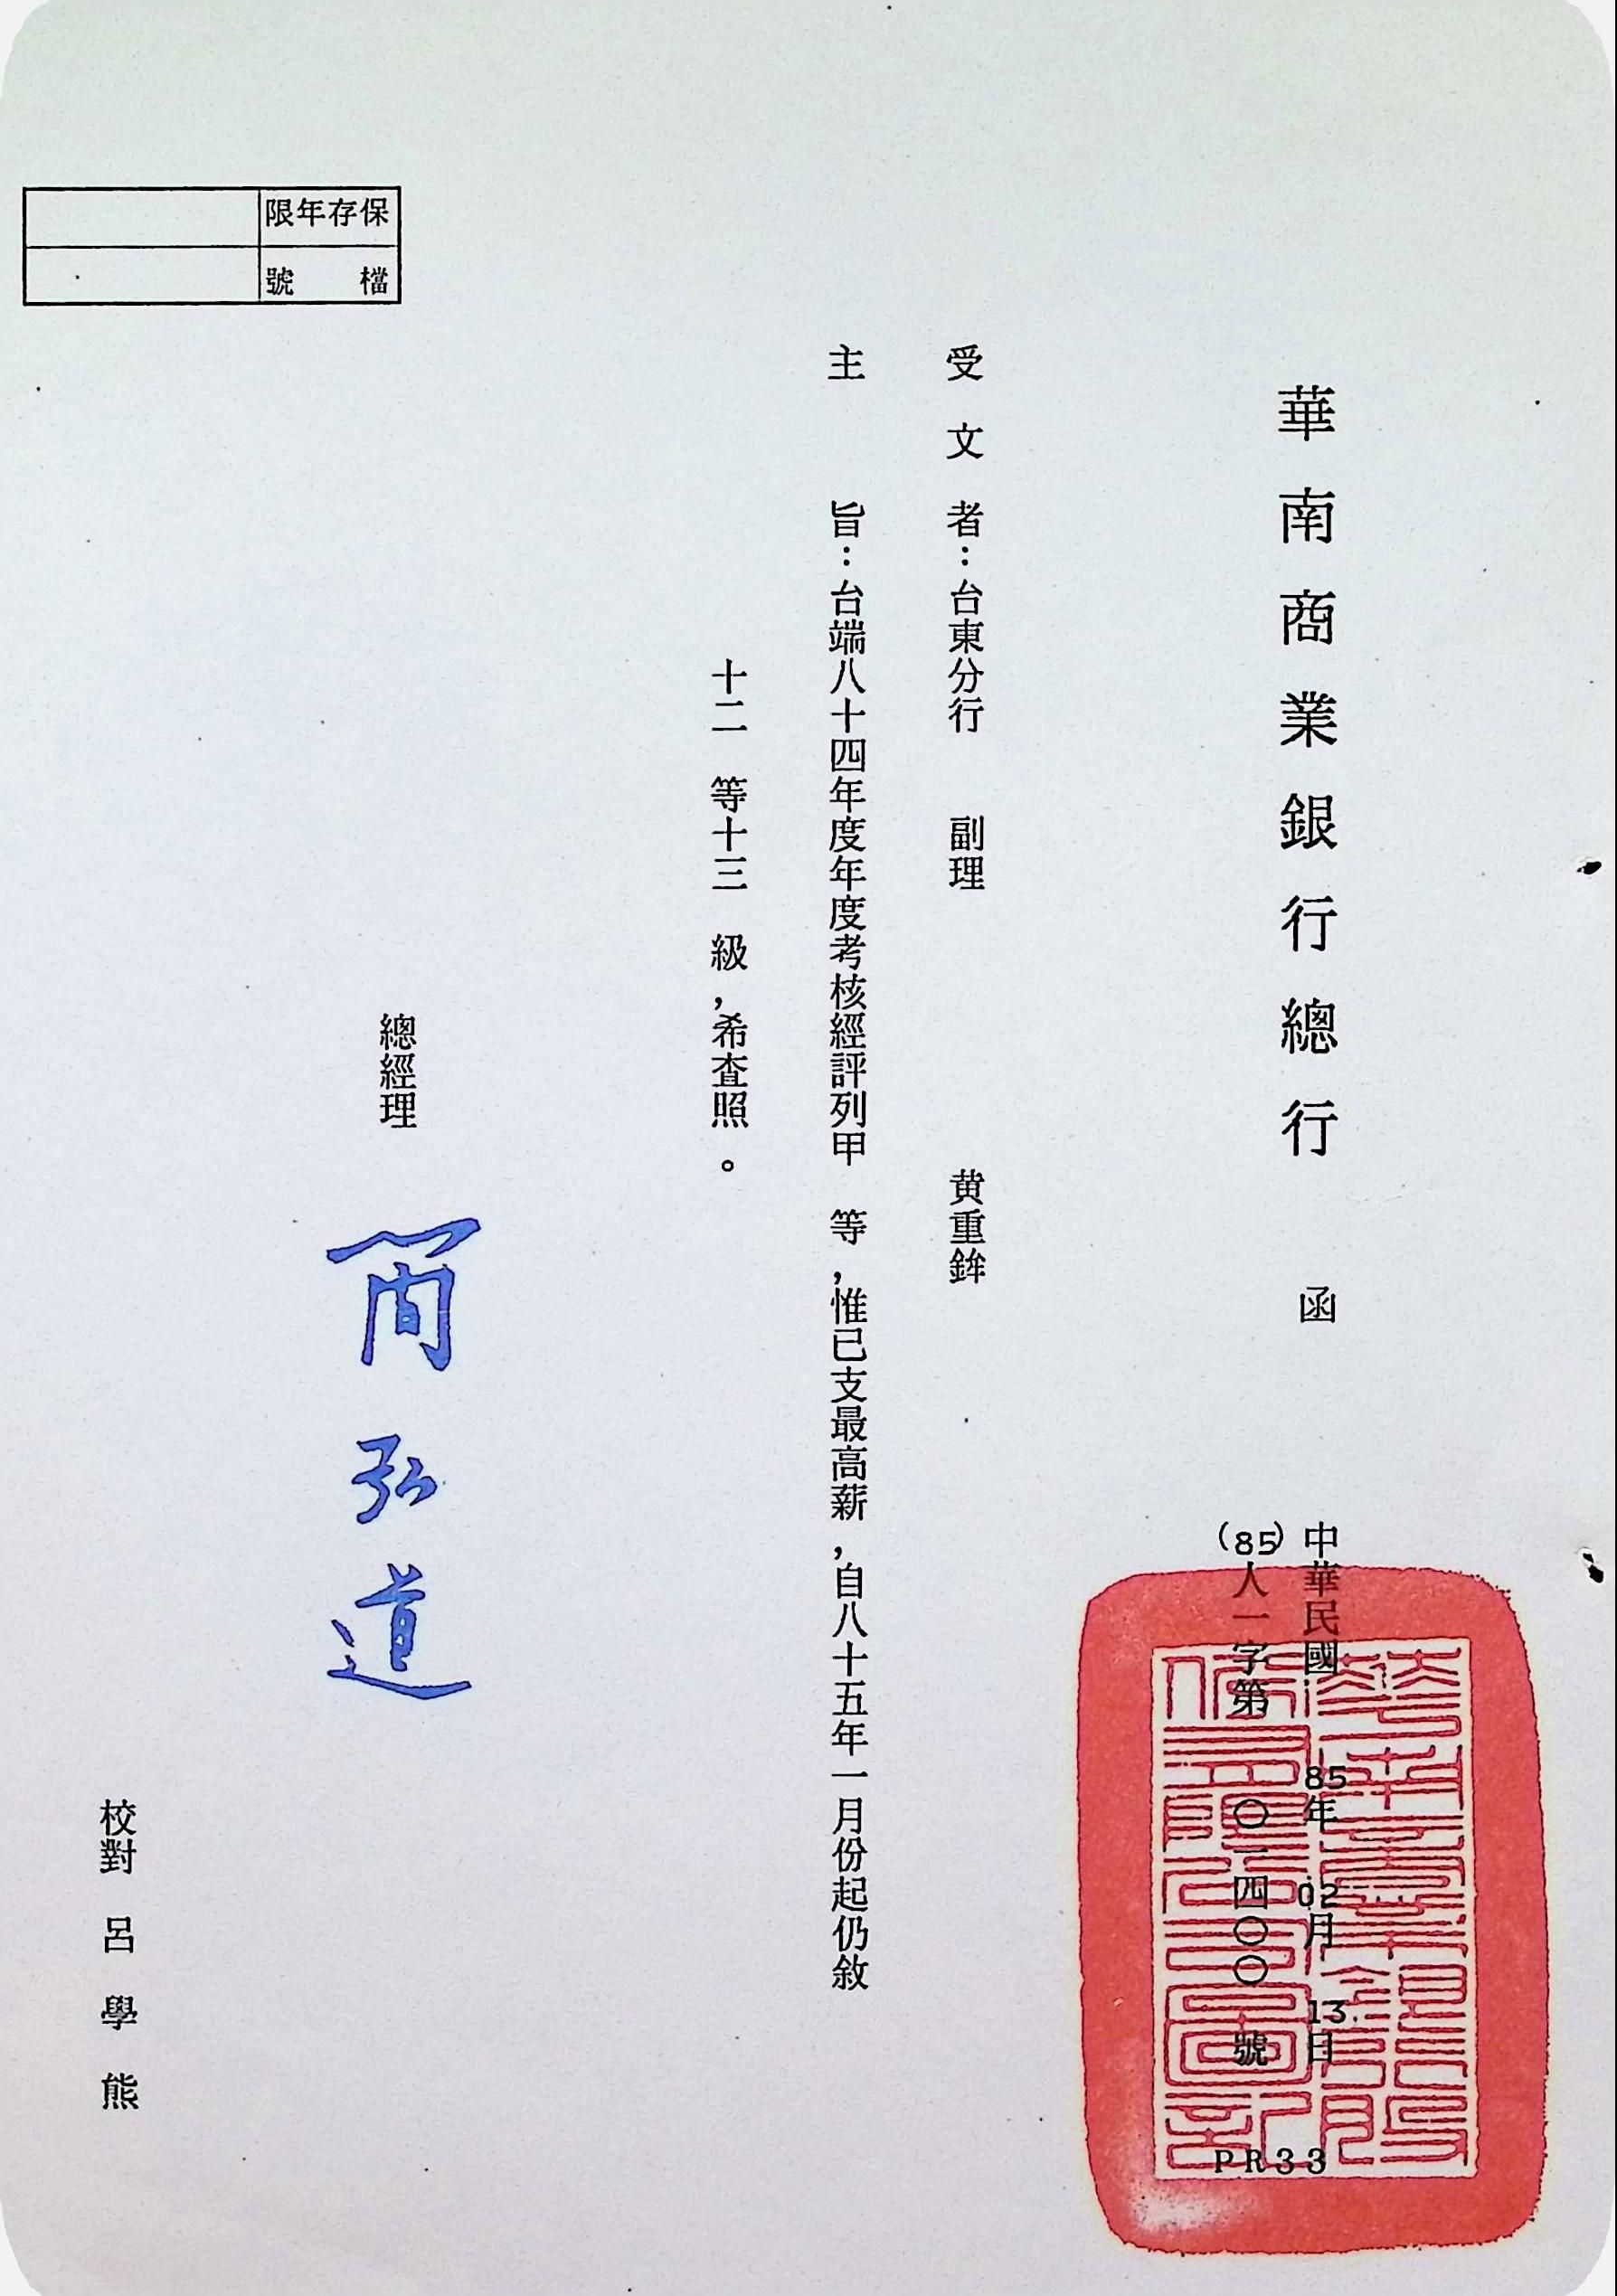 華南商業銀行總行 函
中華民國 85年 02月 13日
(85)人一字第 〇一四〇〇 號
PR33
受文者：台東分行 副理 黄重鉾
主旨：台端八十四年度年度考核經評列甲 等，惟已支最高薪，自八十五年一月份起仍敘
十二 等十三 級，希查照。
總經理 簡弘道
校對 呂學熊
保存年限
檔號